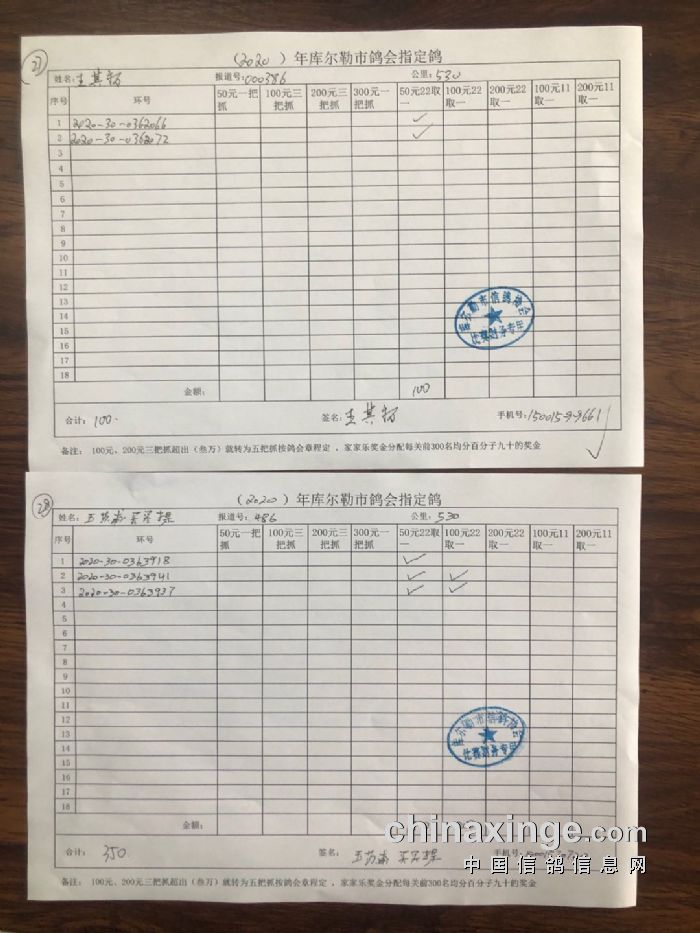 27
（2020）年库尔勒市鸽会指定鸽
姓名: 王其 报道号:000386 公里:530
序号 环号 50元一把抓 100元三把抓 200元三把抓 300元一把抓 50元22取一 100元22取一 200元22取一 100元11取一 200元11取一
1 2020-30-0362066 ✓
2 2020-30-0362072 ✓
3
4
5
6
7
8
9
10
11
12
13
14
15
16
17
18
库尔勒市信鸽协会
比赛财务专用
金额: 100
合计: 100. 签名: 王其 手机号:
备注: 100元、200元三把抓超出（叁万）就转为五把抓按鸽会章程定，家家乐奖金分配每关前300名均分百分子九十的奖金
28
（2020）年库尔勒市鸽会指定鸽
姓名: 报道号: 486 公里: 530
序号 环号 50元一把抓 100元三把抓 200元三把抓 300元一把抓 50元22取一 100元22取一 200元22取一 100元11取一 200元11取一
1 2020-30-0363918 ✓
2 2020-30-0363941 ✓ ✓
3 2020-30-0363937 ✓ ✓
4
5
6
7
8
9
10
11
12
13
14
15
16
17
18
库尔勒市信鸽协会
比赛财务专用
金额:
合计: 350. 签名: 手机号:
备注: 100元、200元三把抓超出（叁万）就转为五把抓按鸽会章程定，家家乐奖金分配每关前300名均分百分子九十的奖金
chinaxinge.com
中国信鸽信息网